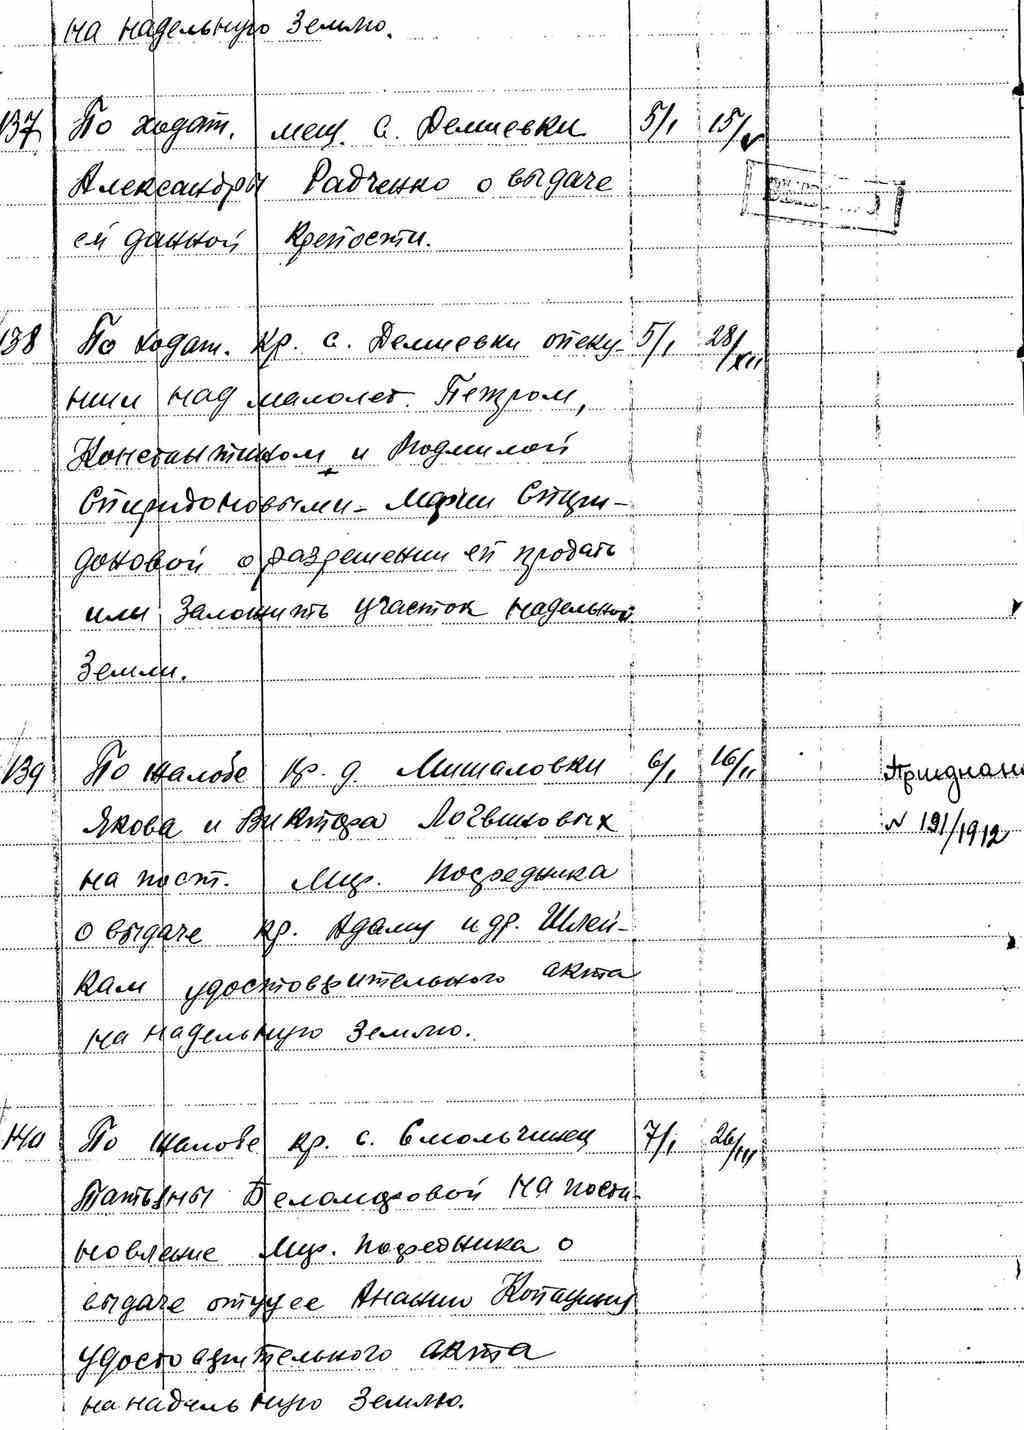 на надельную землю.
137 По ходат. мещ. с. Демиевки 5/I 15/V
Александры Радченко о выдаче
ей данной крепости.
138 По ходат. кр. с. Демиевки опеку- 5/I 28/XII
нши над малолет. Петром,
Константином и Людмилой
Спиридоновыми - Марии Спири-
доновой о разрешении ей продать
или заложить участок надельной
земли.
139 По жалобе кр. д. Михаловки 6/I 16/II Приеднано
Якова и Виктора Логвиновых N 191/1912
на пост. Мир. Посредника
о выдаче кр. Адаму и др. Шлей-
кам удостоверительного акта
на надельную землю.
140 По жалобе кр. с. Смольчинец 7/I 26/III
Татьяны Беломазовой на поста-
новление Мир. посредника о
выдаче отцу ее Ананию
удостоверительного акта
на надельную землю.